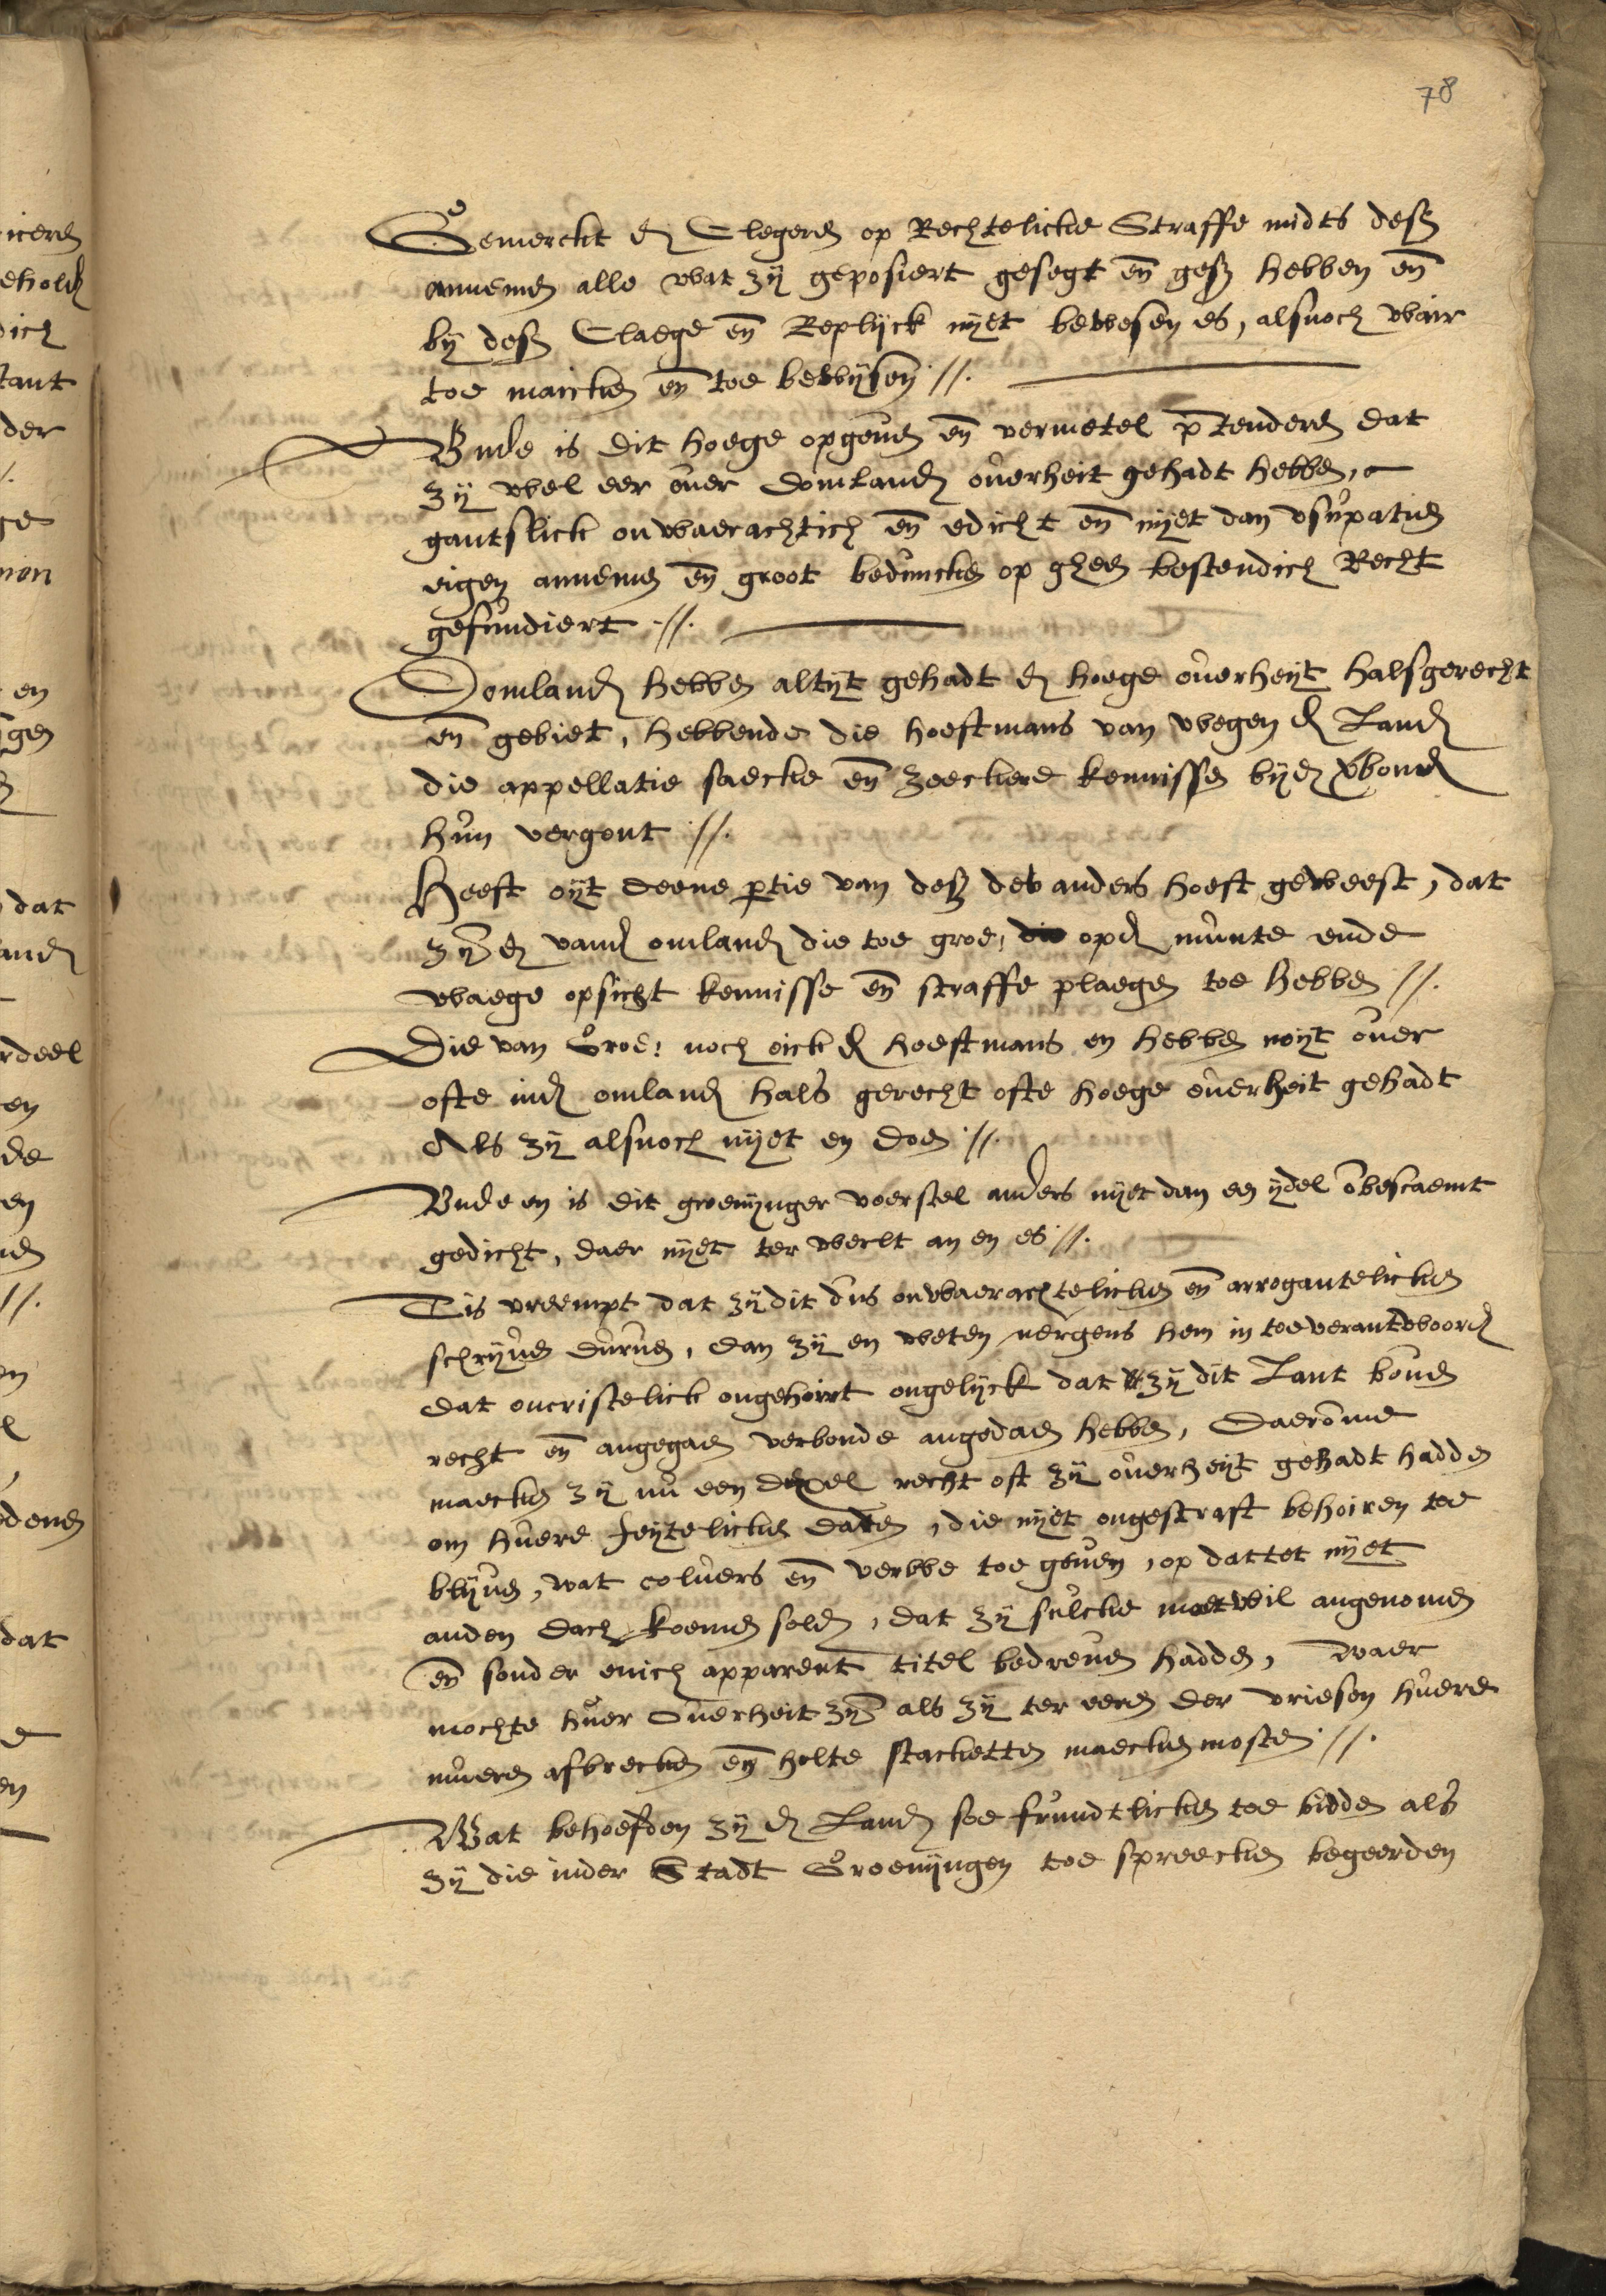 78
Gemerckt d Clegeren op Rechtelicke Straffe midts desz
annemen alle wat zÿ geposiert gesegt en̄ gesz hebben en̄
bÿ desz Claege en̄ Replÿck nÿet bewesen es, alsnoch wair
toe maicken en̄ toe bewÿsen //.
Ende is dit hoege opgeuen en̄ vermetel p̄tenderen dat
zÿ wel eer ouer domland ouerheit gehadt hebben,
gantslick onwaerachtich en̄ edicht en̄ nÿet dan vsupatien
eigen annemen en̄ groot beduncken op gheen bestendich Recht
gefundiert //.
Domland hebben altÿt gehadt d hoege ouerheÿt halsgerecht
en̄ gebiet, hebbende die hoeftmans van wegen d Land
die appellatie saecke en̄ zeeckere kennisse bÿd vbond
hun vergont //.
Heeft oÿt deene ptie van desz des anders hoeft geweest, dat
zÿ d vand omland die toe groe: opd munte ende
waege opsicht kennisse en̄ straffe plaegen toe hebben //.
Die van Groe: noch oick d hoeftmans en hebben noÿt ouer
ofte ind omland hals gerecht ofte hoege ouerheit gehadt
Als zÿ alsnoch nÿet en doen //.
Ende en is dit groenÿnger voerstel anders nÿet dan een ÿdel ōbescaemt
gedicht, daer nÿet ter werlt an en es //.
Tis vreempt dat zÿ dit dus onwaerachtelicken en̄ arrogantelicken
schrÿuen duruen, dan zÿ en weten nergens hem in toe verantwoord
dat oncristelick ongehoirt ongelÿck dat zÿ dit Lant bouen
recht en̄ angegaen verbonde angedaen hebben, Daerōme
maecken zÿ nu een recht oft zÿ ouerheÿt gehadt hadden
om huere feÿtelicken daden, die nÿet ongestraft behoiren toe
blÿuen, wat coluers en̄ verwe toe geuen, op dattet nÿet
anden dach koemen solden, dat zÿ sulcke moetwil angenomen
en̄ sonder enich apparent titel bedreuen hadden, waer
mochte huer Ouerheit zÿn als zÿ ter eeren der vriesen huere
mueren afbrecken en̄ holte stacketten maecken mosten //.
Wat behoefden zÿ d Land soe frundtlicken toe bidden als
zÿ die inder Stadt Groenÿngen toe spreecken begeerden